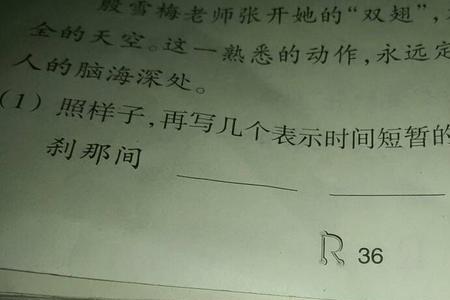 殷雪梅老师张开她的“双翅”，
全的天空。这一熟悉的动作，永远定
人的脑海深处。
（1）照样子，再写几个表示时间短暂的
刹那间
R 36